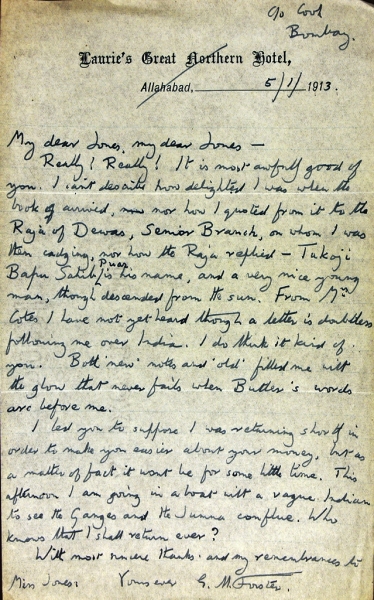 c/o Cook
Bombay.
Laurie's Great Northern Hotel,
Allahabad, 5/1/1913.
My dear Jones, my dear Jones —
Really! Really! It is most awfully good of
you. I can't describe how delighted I was when the
book arrived, nor how I quoted from it to the
Raja of Dewas, Senior Branch, on whom I was
then cadging, nor how the Raja replied — Tukoji
Bapu Sahib Puar is his name, and a very nice young
man, though descended from the sun. From Mrs
Cotes I have not yet heard though a letter is doubtless
following me over India. I do think it kind of
you. Both 'new' notes and 'old' filled me with
the glow that never fails when Butler's words
are before me.
I led you to suppose I was returning shortly in
order to make you easier about your money, but as
a matter of fact it wont be for some little time. This
afternoon I am going in a boat with a vague Indian
to see the Ganges and the Jumna conflue. Who
knows that I shall return ever?
With most sincere thanks and my remembrances to
Miss Jones: Yours ever E. M. Forster.